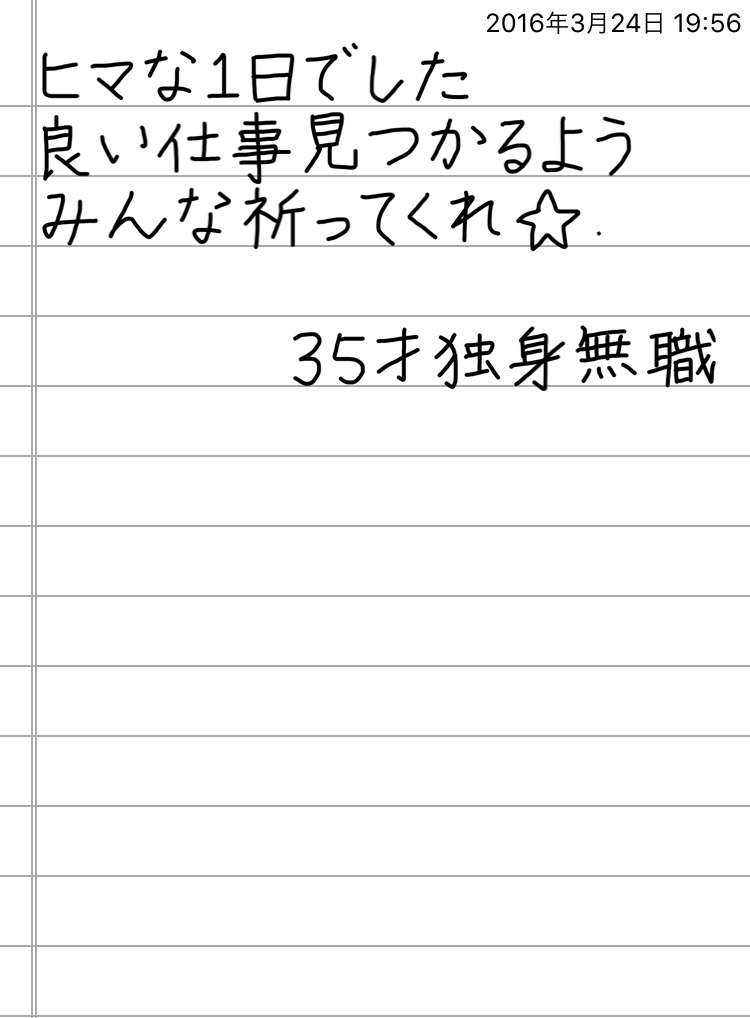 2016年3月24日 19:56
ヒマな1日でした
良い仕事見つかるよう
みんな祈ってくれ☆.
35才独身無職